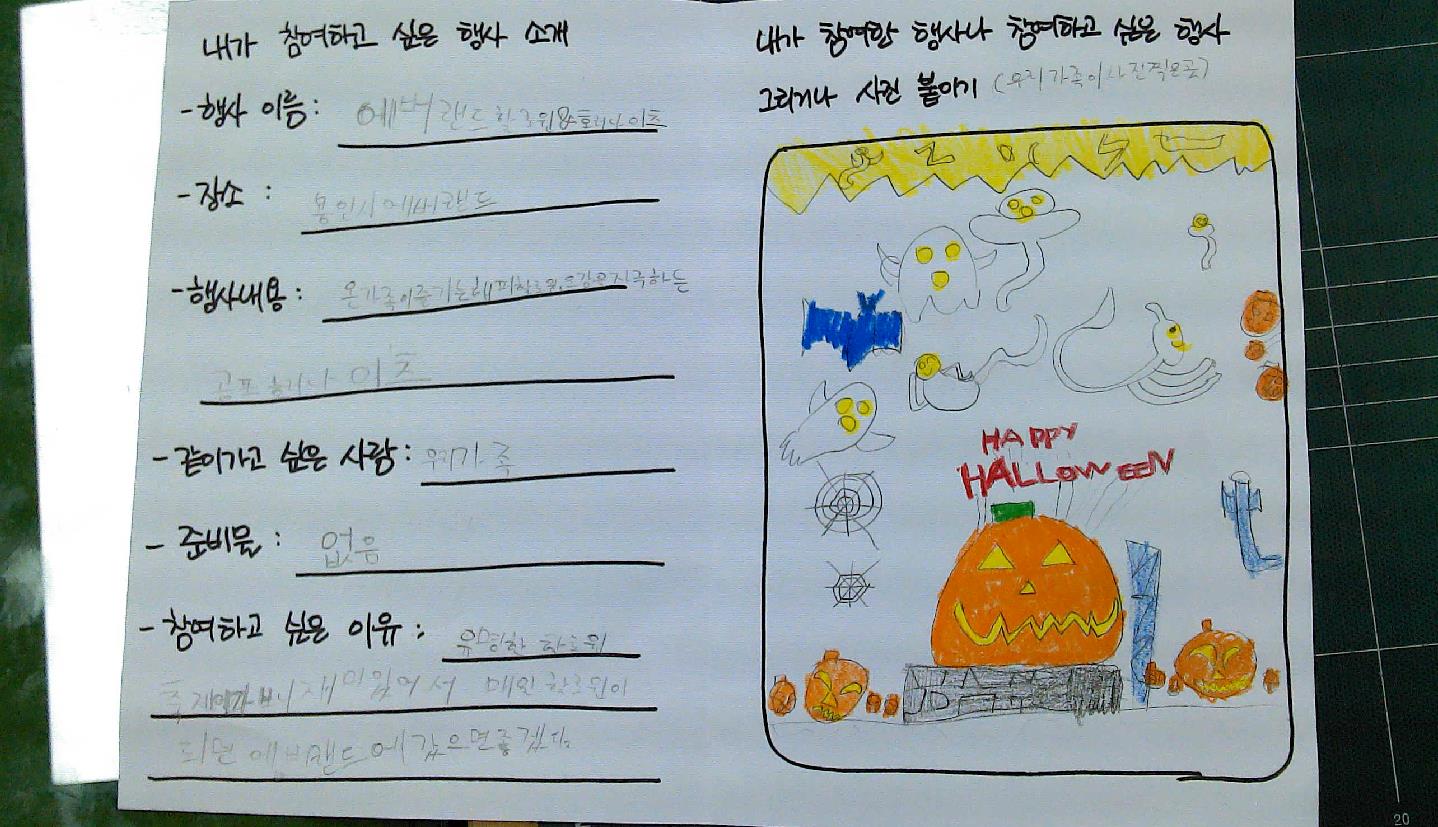 내가 참여하고 싶은 행사 소개
- 행사 이름 : 에버랜드 할로윈&호러나이츠
- 장소 : 용인시에버랜드
- 행사내용 : 온가족이즐기는해피할로윈, 오감을자극하는
공포 호러나이츠
- 같이가고 싶은 사람 : 우리가족
- 준비물 : 없음
- 참여하고 싶은 이유 : 유명한 할로윈
축제이가 보니 재미있어서 매일 할로윈이
되면 에버랜드에 갔으면좋겠다.
내가 참여한 행사나 참여하고 싶은 행사
그리거나 사진 붙이기 (우리가족이사진찍은곳)
HAPPY
HALLOWEEN
20